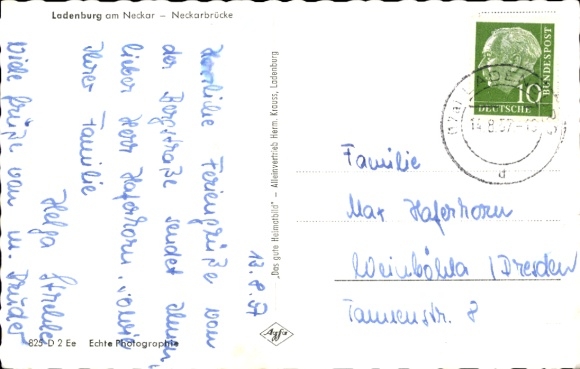 Ladenburg am Neckar — Neckarbrücke
13.8.57
Herzliche Feriengrüße von
der Bergstraße sendet Ihnen,
lieber Herr Haferkorn, sowie
Ihrer Familie
Helga Strehler
Viele Grüße von m. Bruder
825-D 2 Ee Echte Photographie
„Das gute Heimatbild" – Alleinvertrieb Herm. Krauss, Ladenburg
Agfa
10
DEUTSCHE
BUNDESPOST
14.8.57
d
Familie
Max Haferkorn
Weinböhla / Dresden
Tannenstr. 8